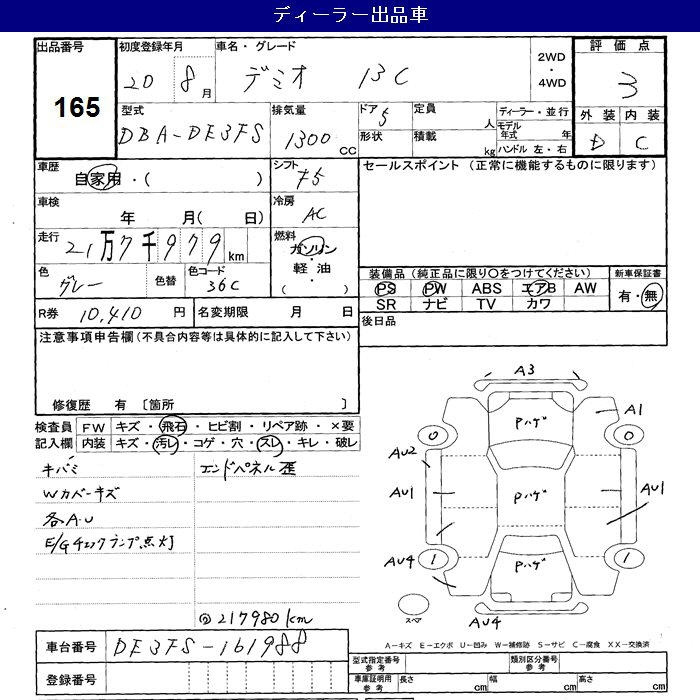 ディーラー出品車
出品番号
165
初度登録年月
20 8月
車名・グレード
デミオ 13C
2WD
・
4WD
評価点
3
型式
DBA-DE3FS
排気量
1300 cc
ドア 5
形状
定員 人
積載 kg
ディーラー・並行
モデル年式 年
ハンドル 左・右
外装 内装
D C
車歴
自家用・( )
シフト
F5
セールスポイント (正常に機能するものに限ります)
車検
年 月( 日)
冷房
AC
走行
21万7千979km
燃料
ガソリン
・
軽油
・
( )
色
グレー
色替
色コード
36C
装備品 (純正品に限り○をつけてください)
PS PW ABS エアB AW
SR ナビ TV カワ
新車保証書
有・無
R券 10,410 円
名変期限 月 日
後日品
注意事項申告欄 (不具合内容等は具体的に記入して下さい)
修復歴 有 〔箇所 〕
検査員
記入欄
FW キズ・飛石・ヒビ割・リペア跡・×要
内装 キズ・汚レ・コゲ・穴・スレ・キレ・破レ
キバミ
Wカバーキズ
各A.U
E/Gチェックランプ点灯
エンドパネル歪
@217980km
A3
A1
Pハゲ
0
0
AU2
AU1
Pハゲ
AU1
AU4
1
Pハゲ
1
スペア
AU4
A-キズ E-エクボ U-凹み W-補修跡 S-サビ C-腐食 XX-交換済
車台番号 DE3FS-161988
登録番号
型式指定番号
参考
類別区分番号
参考
車庫証明用
参考
長さ cm
幅 cm
高さ cm